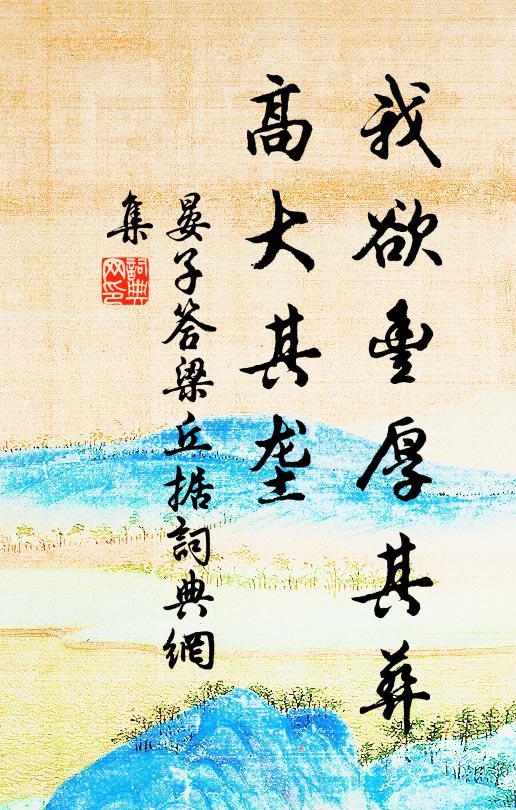 我欲豐厚其葬
高大其垄
晏子答梁丘据詞典網
集
詞典
网印